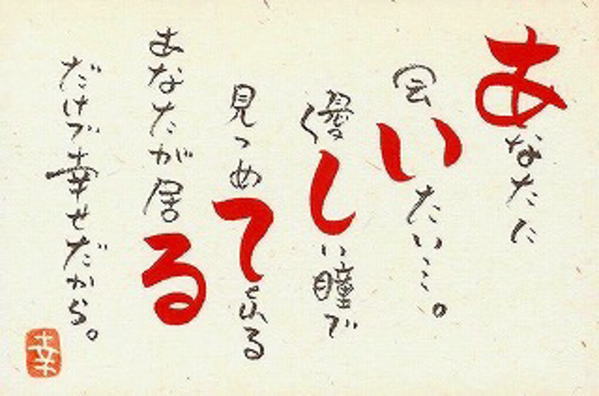 あなたに
会いたい…。
優しい瞳で
見つめてくる
あなたが居る
だけで幸せだから。
幸